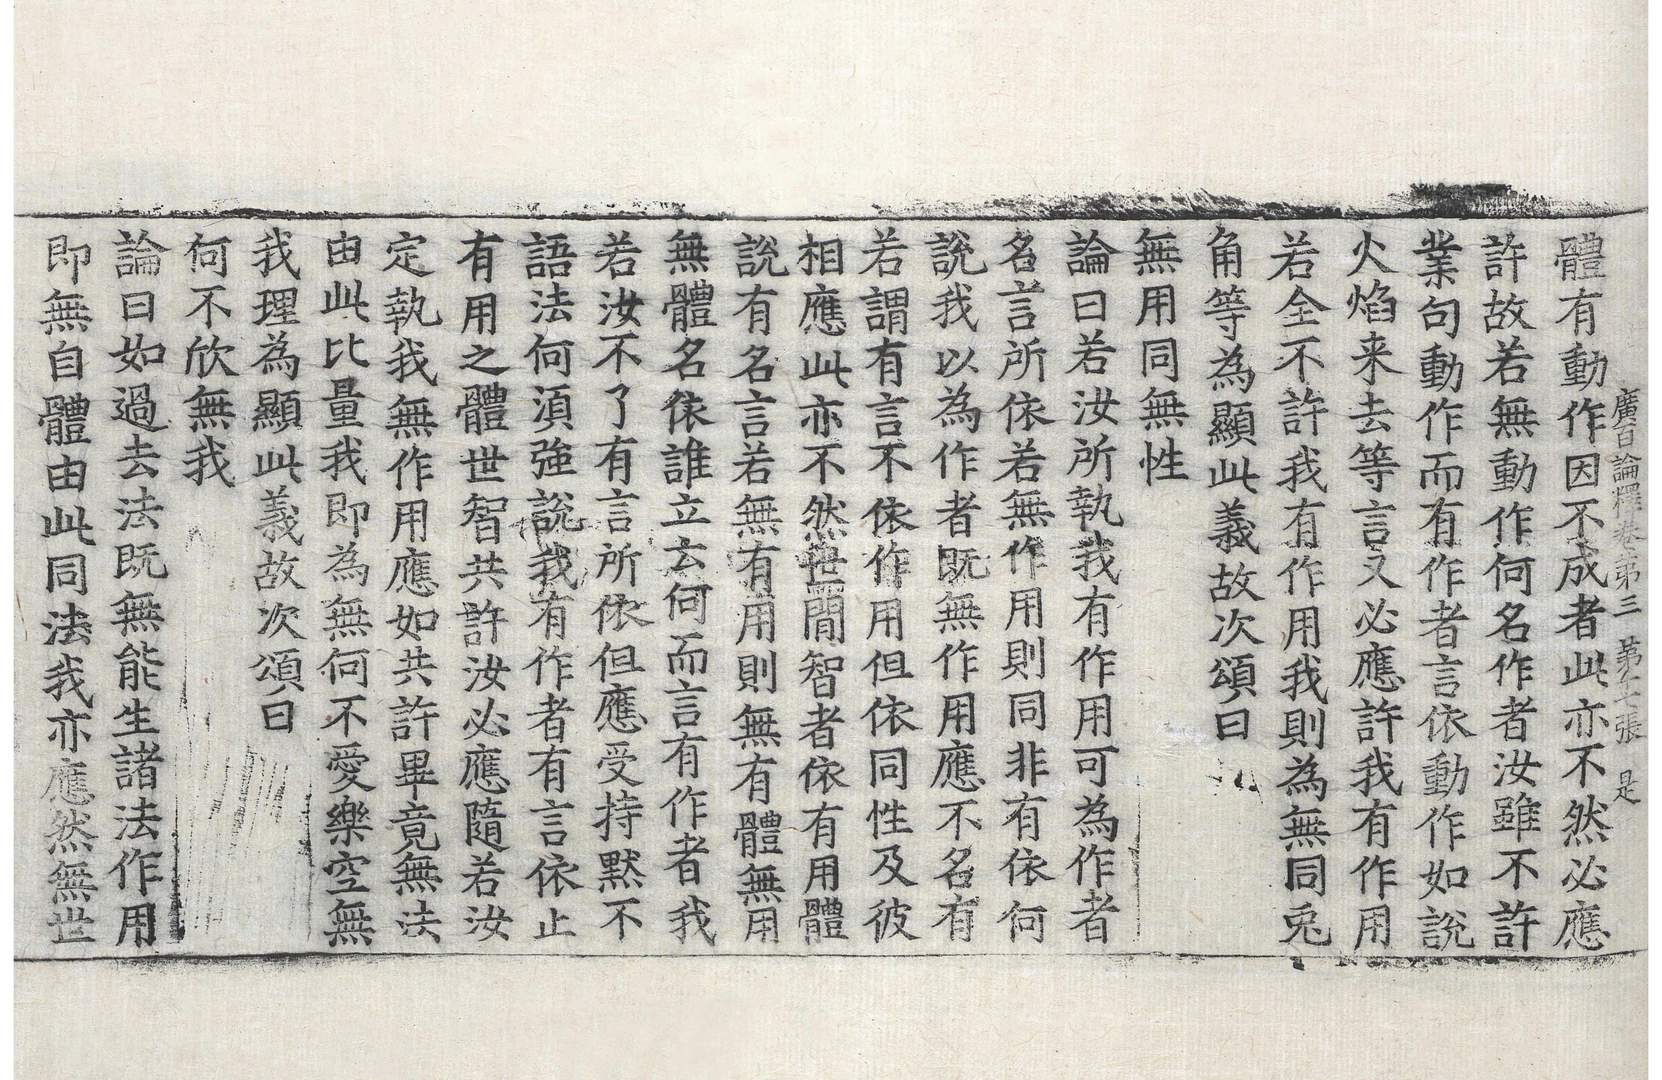 廣百論釋卷第三 第七張 是
體有動作因不成者此亦不然必應
許故若無動作何名作者汝雖不許
業句動作而有作者言依動作如說
火焰来去等言又必應許我有作用
若全不許我有作用我則為無同兎
角等為顯此義故次頌曰
無用同無性
論曰若汝所執我有作用可為作者
名言所依若無作用則同非有依何
說我以為作者既無作用應不名有
若謂有言不依作用但依同性及彼
相應此亦不然世閒智者依有用體
說有名言若無有用則無有體無用
無體名依誰立云何而言有作者我
若汝不了有言所依但應受持默不
語法何湏強說我有作者有言依止
有用之體世智共許汝必應隨若汝
定執我無作用應如共許畢竟無法
由此比量我即為無何不愛樂空無
我理為顯此義故次頌曰
何不欣無我
論曰如過去法既無能生諸法作用
即無自體由此同法我亦應然無世